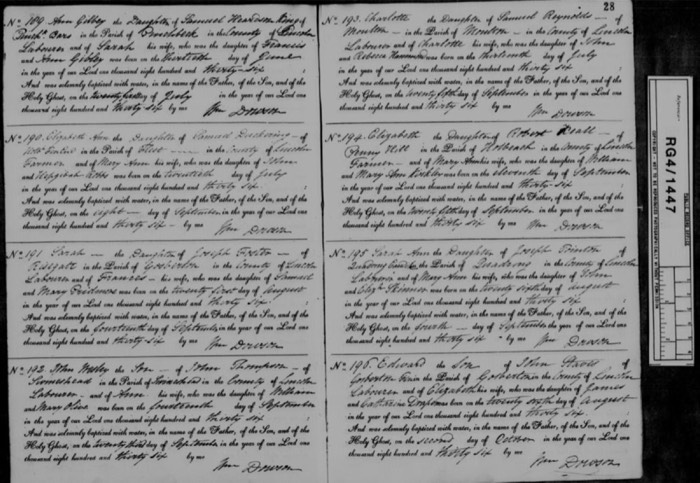 28
No. 189 Ann Gilby the Daughter of Samuel King of
in the Parish of Pinchbeck in the County of Lincoln
Labourer and of Sarah his wife, who was the daughter of Francis
and Ann Gibby was born on the day of June
in the year of our Lord one thousand eight hundred and thirty-six
And was solemnly baptized with water, in the name of the Father, of the Son, and of the
Holy Ghost, on the day of July in the year of our Lord one
thousand eight hundred and thirty six by me
Wm Dowson
No. 190 Elizabeth Ann the Daughter of of
in the Parish of Fleet in the County of Lincoln
Farmer and of Mary Ann his wife, who was the daughter of John
and Hepzibah was born on the twentieth day of July
in the year of our Lord one thousand eight hundred and thirty six
And was solemnly baptized with water, in the name of the Father, of the Son, and of the
Holy Ghost, on the eight day of September in the year of our Lord one
thousand eight hundred and thirty six by me
Wm Dowson
No. 191 Sarah the Daughter of Joseph Foster of
Risegate in the Parish of Gosberton in the County of Lincoln
Labourer and of Frances his wife, who was the daughter of Samuel
and Mary was born on the twenty first day of August
in the year of our Lord one thousand eight hundred and thirty six
And was solemnly baptized with water, in the name of the Father, of the Son, and of the
Holy Ghost, on the fourteenth day of September in the year of our Lord one
thousand eight hundred and thirty-six by me
Wm Dowson
No. 192 John Wesley the Son of John Thompson of
in the Parish of in the County of Lincoln
Labourer and of Ann his wife, who was the daughter of William
and Mary was born on the fourteenth day of September
in the year of our Lord one thousand eight hundred and thirty six
And was solemnly baptized with water, in the name of the Father, of the Son, and of the
Holy Ghost, on the twenty third day of September in the year of our Lord one
thousand eight hundred and thirty six by me
Wm Dowson
No. 193. Charlotte the Daughter of Samuel Reynolds of
Moulton in the Parish of Moulton in the County of Lincoln
Labourer and of Charlotte his wife, who was the daughter of John
and Rebecca was born on the thirteenth day of July
in the year of our Lord one thousand eight hundred and thirty six
And was solemnly baptized with water, in the name of the Father, of the Son, and of the
Holy Ghost, on the twenty fifth day of September in the year of our Lord one
thousand eight hundred and thirty six by me
Wm Dowson
No. 194. Elizabeth the Daughter of Robert of
Penny Hill in the Parish of Holbeach in the County of Lincoln
Farmer and of Mary Ann his wife, who was the daughter of William
and Mary Ann was born on the eleventh day of September
in the year of our Lord one thousand eight hundred and thirty-six
And was solemnly baptized with water, in the name of the Father, of the Son, and of the
Holy Ghost, on the twenty fifth day of September in the year of our Lord one
thousand eight hundred and thirty six by me
Wm Dowson
No. 195 Sarah Ann the Daughter of Joseph of
the Parish of Quadring in the County of Lincoln
Labourer and of Mary Ann his wife, who was the daughter of John
and Skinner was born on the twenty sixth day of August
in the year of our Lord one thousand eight hundred and thirty six
And was solemnly baptized with water, in the name of the Father, of the Son, and of the
Holy Ghost, on the fourth day of September in the year of our Lord one
thousand eight hundred and thirty six by me
Wm Dowson
No. 196. Edward the Son of John of
Gosberton in the Parish of Gosberton in the County of Lincoln
Labourer and of Elizabeth his wife, who was the daughter of James
and Catharine was born on the twenty sixth day of August
in the year of our Lord one thousand eight hundred and thirty six
And was solemnly baptized with water, in the name of the Father, of the Son, and of the
Holy Ghost, on the second day of October in the year of our Lord one
thousand eight hundred and thirty six by me
Wm Dowson
RG4/1447